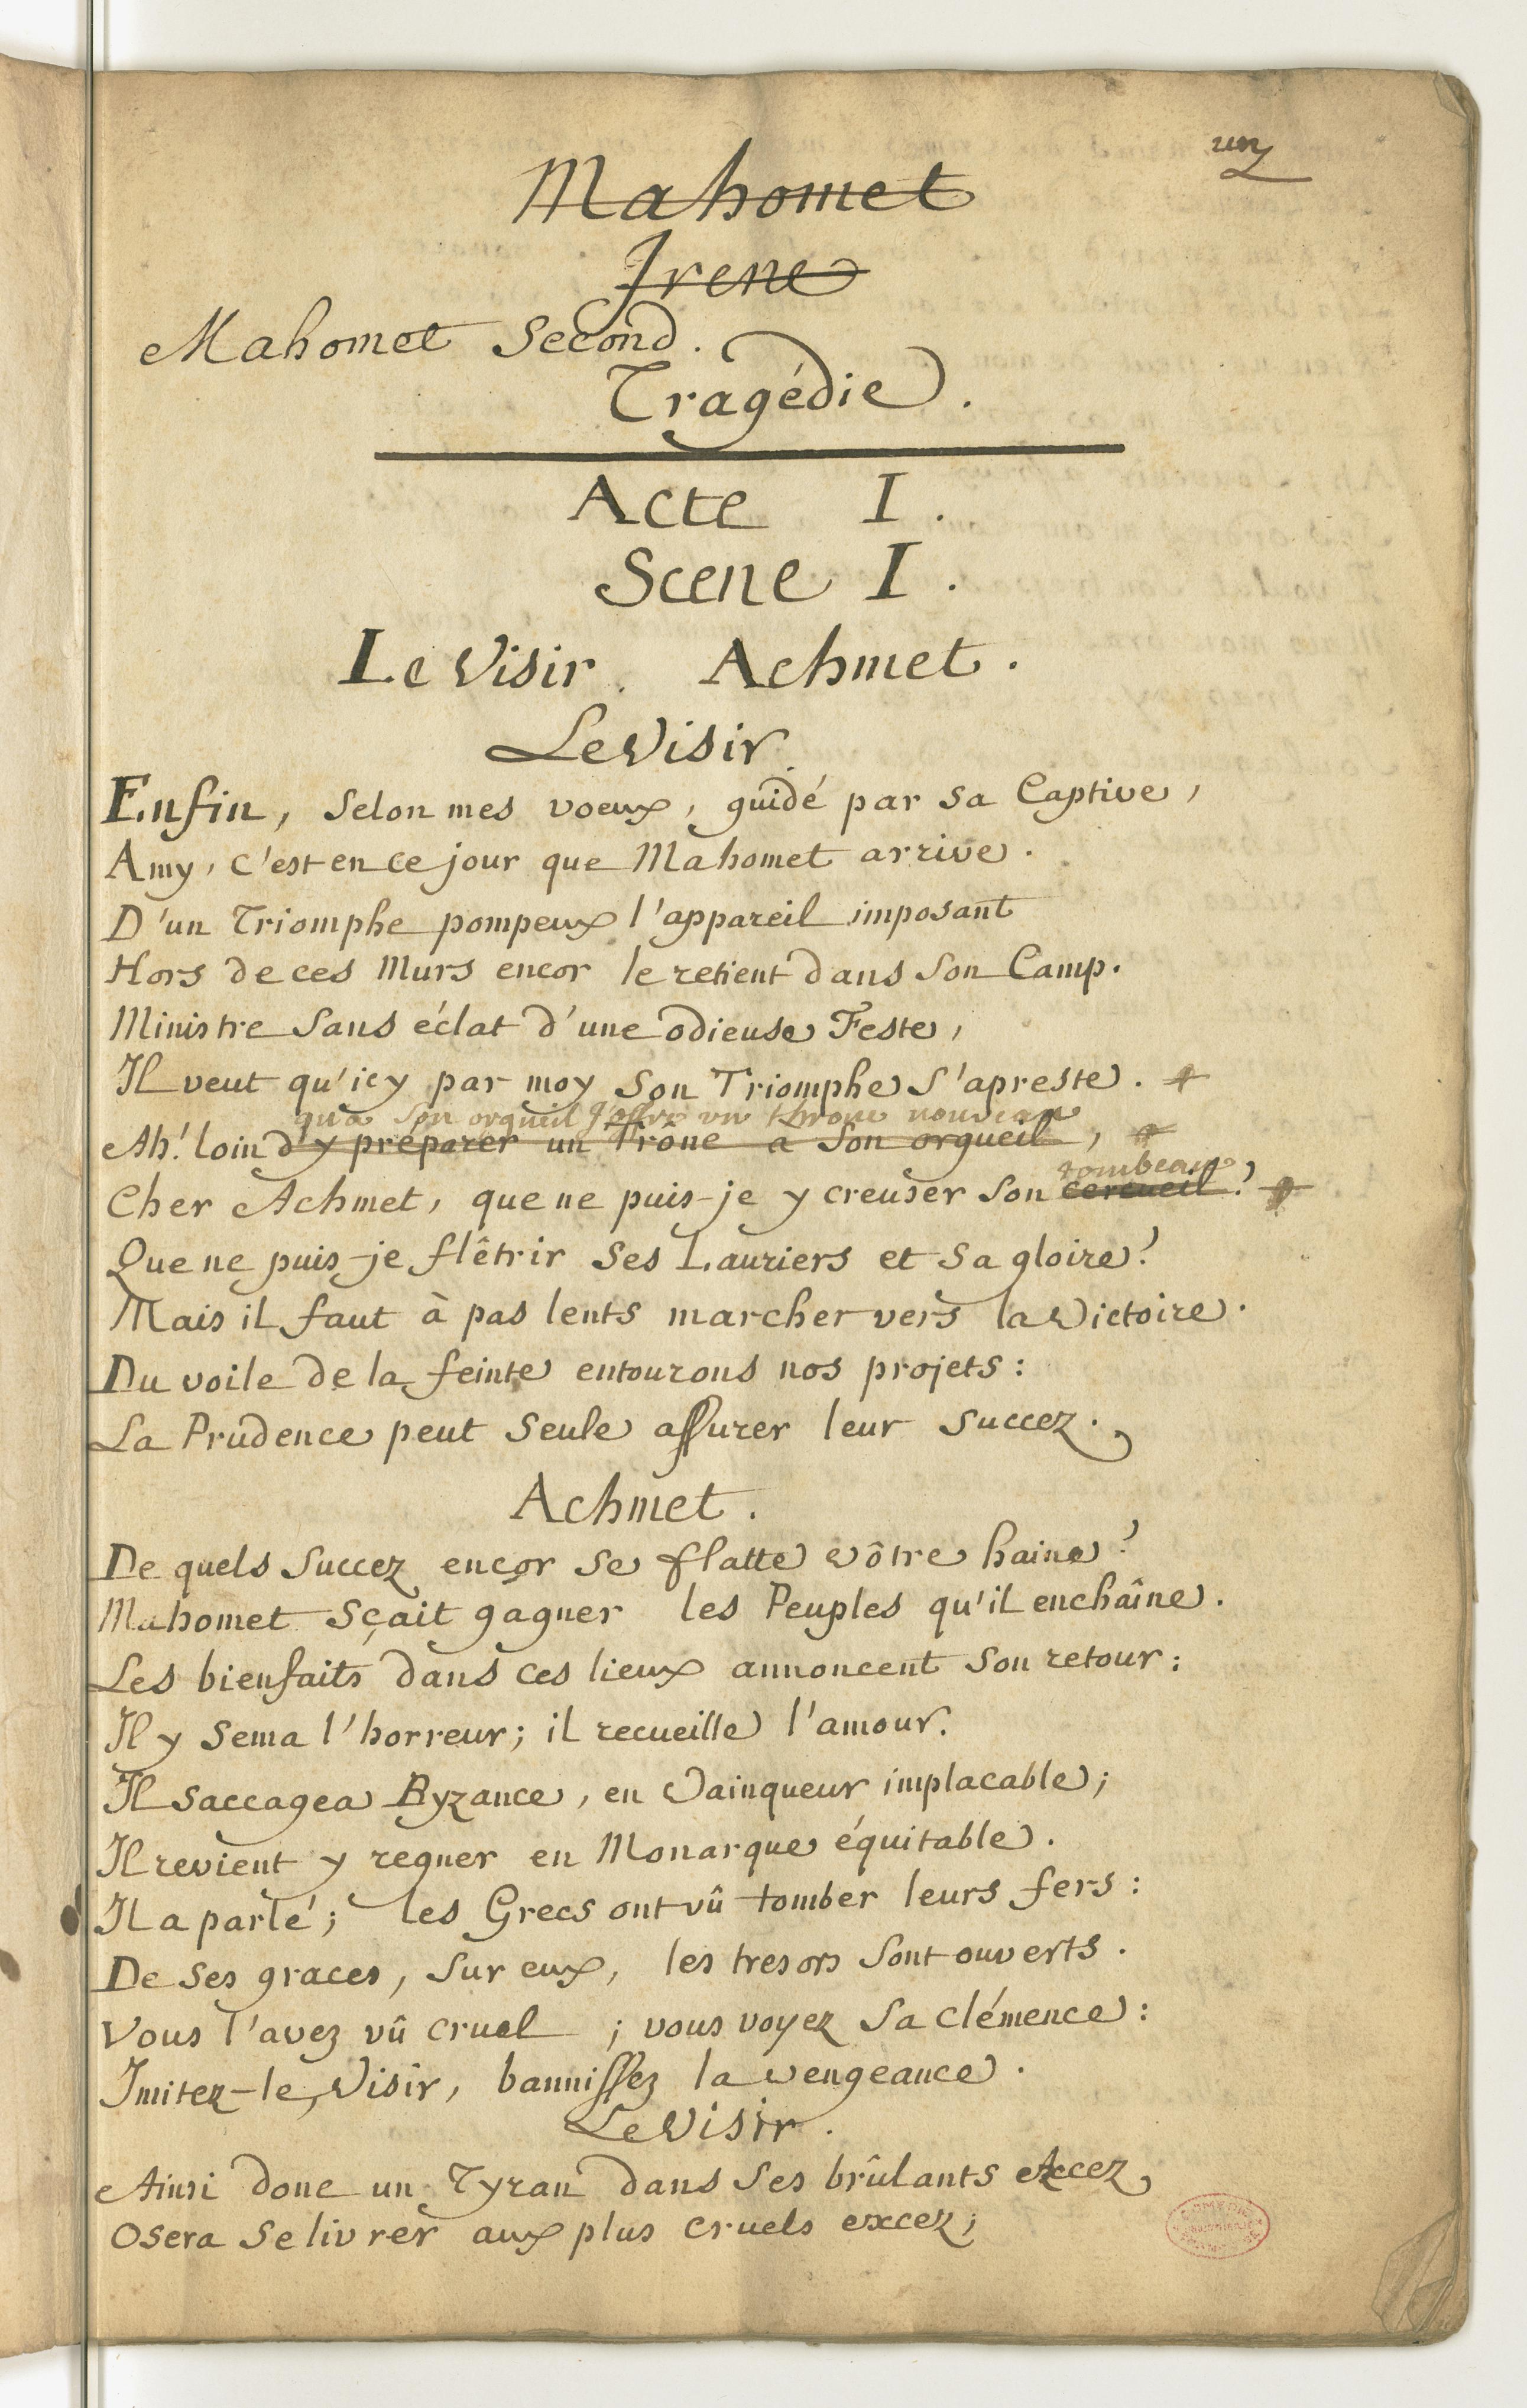 un
Mahomet
Irene
Mahomet Second.
Tragédie.
Acte I.
Scene I.
Le Visir. Achmet.
Le Visir.
Enfin, selon mes voeux, guidé par sa Captive,
Amy, c'est en ce jour que Mahomet arrive.
D'un Triomphe pompeux l'appareil imposant
Hors de ces Murs encor le retient dans son Camp.
Ministre sans éclat d'une odieuse Feste,
Il veut qu'icy par moy son Triomphe s'apreste.
qu'a son orgueil j'offre un throne nouveau
Ah! loin d'y préparer un Trône a son orgueil,
tombeau
Cher Achmet, que ne puis-je y creuser son cercueil?
Que ne puis-je flêtrir ses Lauriers et sa gloire?
Mais il faut à pas lents marcher vers la Victoire.
Du voile de la feinte entourons nos projets:
La Prudence peut seule assurer leur succez.
Achmet.
De quels succez encor se flatte vôtre haine?
Mahomet sçait gagner les Peuples qu'il enchaîne.
Les bienfaits dans ces lieux annoncent son retour:
Il y sema l'horreur; il recueille l'amour.
Il saccagea Byzance, en Vainqueur implacable;
Il revient y regner en Monarque équitable.
Il a parlé; les Grecs ont vû tomber leurs fers:
De ses graces, sur eux, les tresors sont ouverts.
Vous l'avez vû cruel; vous voyez sa clémence:
Imitez-le, Visir, bannissez la vengeance.
Le Visir.
Ainsi donc un Tyran dans ses brûlants accez
Osera se livrer aux plus cruels excez;